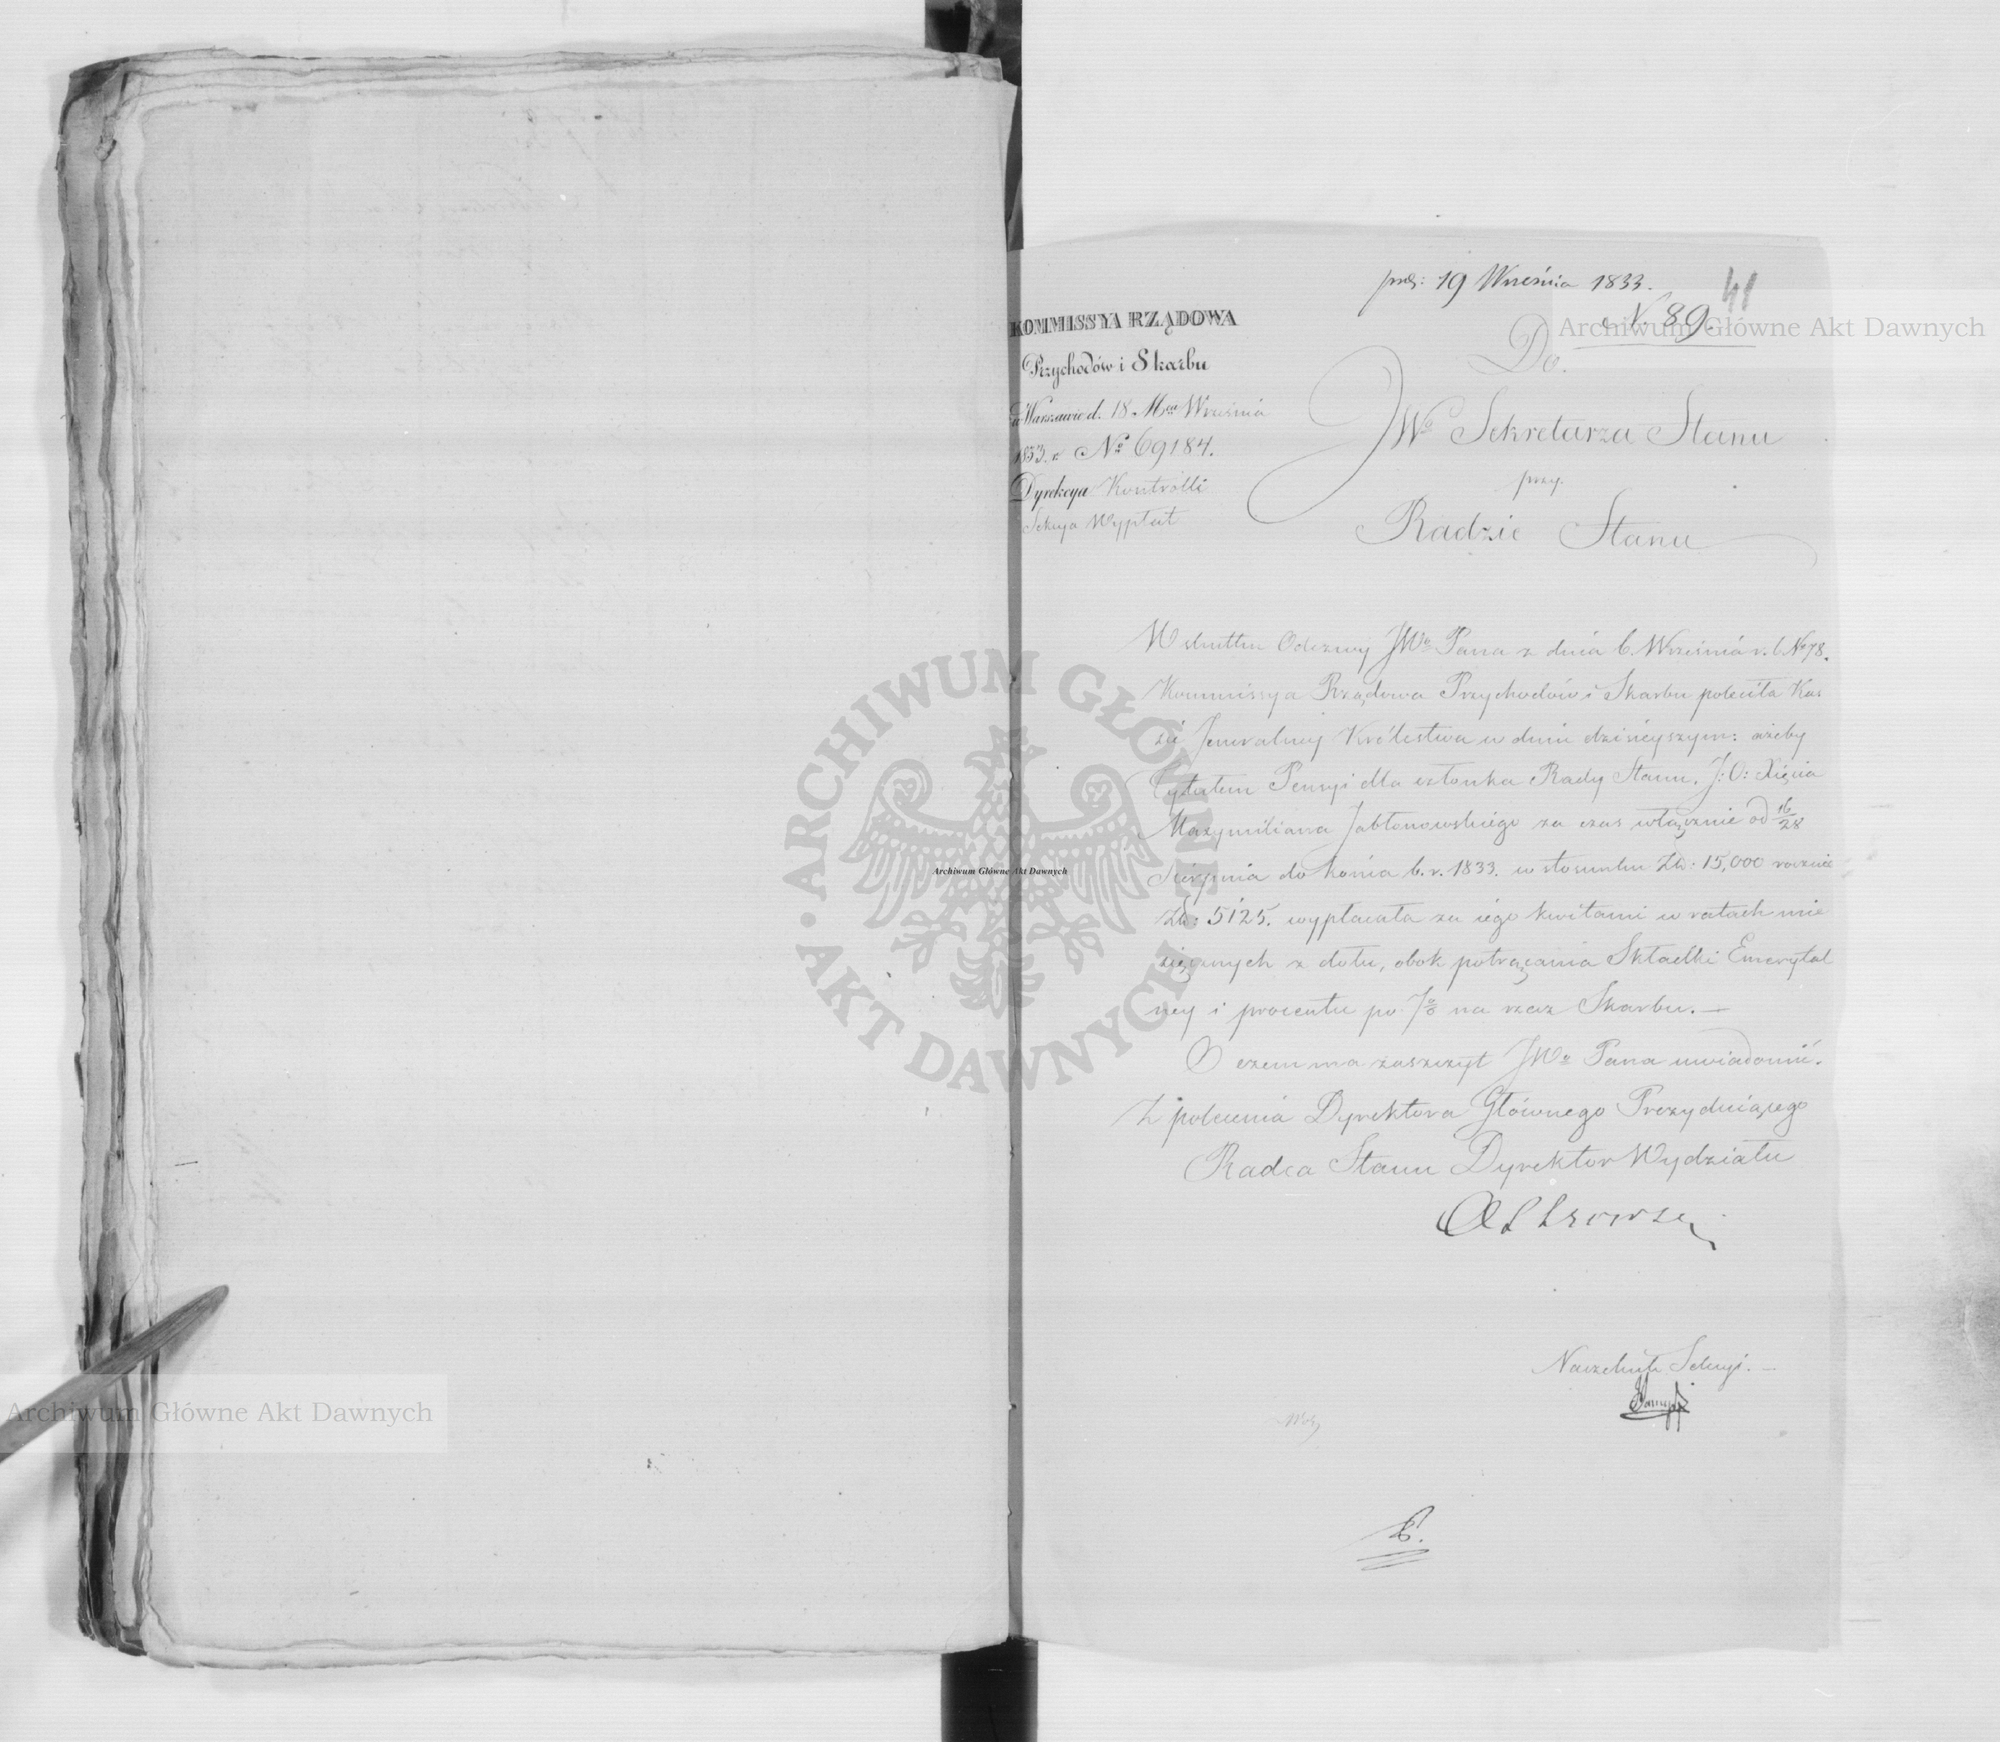 prez: 19 Września 1833.
41
N. 89.
KOMMISSYA RZĄDOWA
Przychodów i Skarbu
w Warszawie d. 18 Mca Września
1833. r. No 69184.
Dyrekcya Kontrolli
Sekcya Wypłat
Do.
JWo Sekretarza Stanu
przy.
Radzie Stanu
W skutku Odezwy JWo Pana z dnia 6. Września r. b. No 78.
Kommissya Rządowa Przychodów i Skarbu poleciła Kas
sie Jeneralney Królestwa w dniu dzisieyszym: ażeby
tytułem Pensyi dla członka Rady Stanu. J: O: Xięcia
Maxymiliana Jabłonowskiego za czas włącznie od 16/28
Sierpnia do końca b. r. 1833. w stosunku Zł: 15,000 rocznie
Zł: 5125. wypłacała za iego kwitami w ratach mie
sięcznych z dołu, obok potrącania Składki Emerytal
ney i procentu po % na rzecz Skarbu. —
O czem ma zaszczyt JWo Pana uwiadomić.
Z polecenia Dyrektora Głównego Prezyduiącego
Radca Stanu Dyrektor Wydziału
Naczelnik Sekcyi. —
Archiwum Główne Akt Dawnych
Archiwum Główne Akt Dawnych
Archiwum Główne Akt Dawnych
ARCHIWUM GŁÓWNE • AKT DAWNYCH •